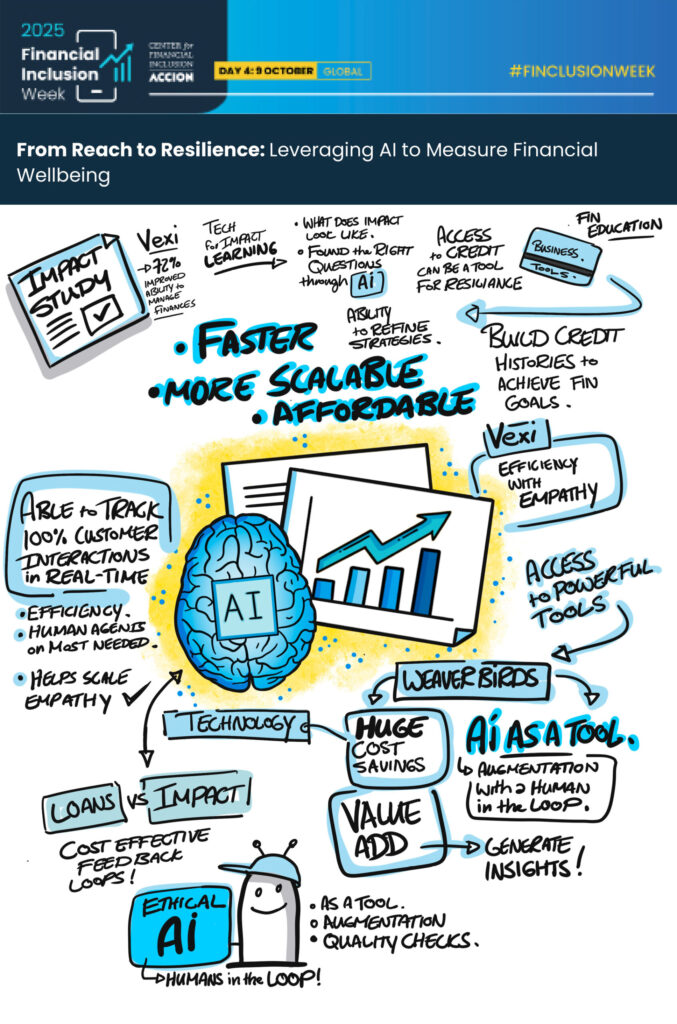 2025
Financial
Inclusion
Week
CENTER for
FINANCIAL
INCLUSION
ACCION
DAY 4: 9 OCTOBER
GLOBAL
#FINCLUSIONWEEK
From Reach to Resilience: Leveraging AI to Measure Financial
Wellbeing
IMPACT
STUDY
Vexi
→72%
IMPROVED
ABILITY to
MANAGE
FINANCES
TECH
for IMPACT
LEARNING
• WHAT DOES IMPACT
LOOK LIKE.
• FOUND the RIGHT
QUESTIONS
through Ai
ABILITY
to REFINE
STRATEGIES.
ACCESS
to CREDIT
CAN BE A TOOL
FOR RESILIANCE
BUSINESS.
TOOLS.
FIN
EDUCATION
BUILD CREDIT
HISTORIES to
ACHIEVE FIN
GOALS.
• FASTER
• MORE SCALABLE
• AFFORDABLE
Vexi
EFFICIENCY
WITH
EMPATHY
ABLE to TRACK
100% CUSTOMER
INTERACTIONS
in REAL-TIME
• EFFICIENCY.
• HUMAN AGENTS
on MOST NEEDED.
• HELPS SCALE
EMPATHY
AI
ACCESS
to POWERFUL
TOOLS
WEAVER BIRDS
TECHNOLOGY
HUGE
COST
SAVINGS
Ai AS A TOOL.
AUGMENTATION
WITH a HUMAN
in the LOOP.
VALUE
ADD
GENERATE
INSIGHTS!
LOANS VS IMPACT
COST EFFECTIVE
FEEDBACK
LOOPS!
ETHICAL
Ai
• AS A TOOL.
• AUGMENTATION
• QUALITY CHECKS.
HUMANS in the LOOP!